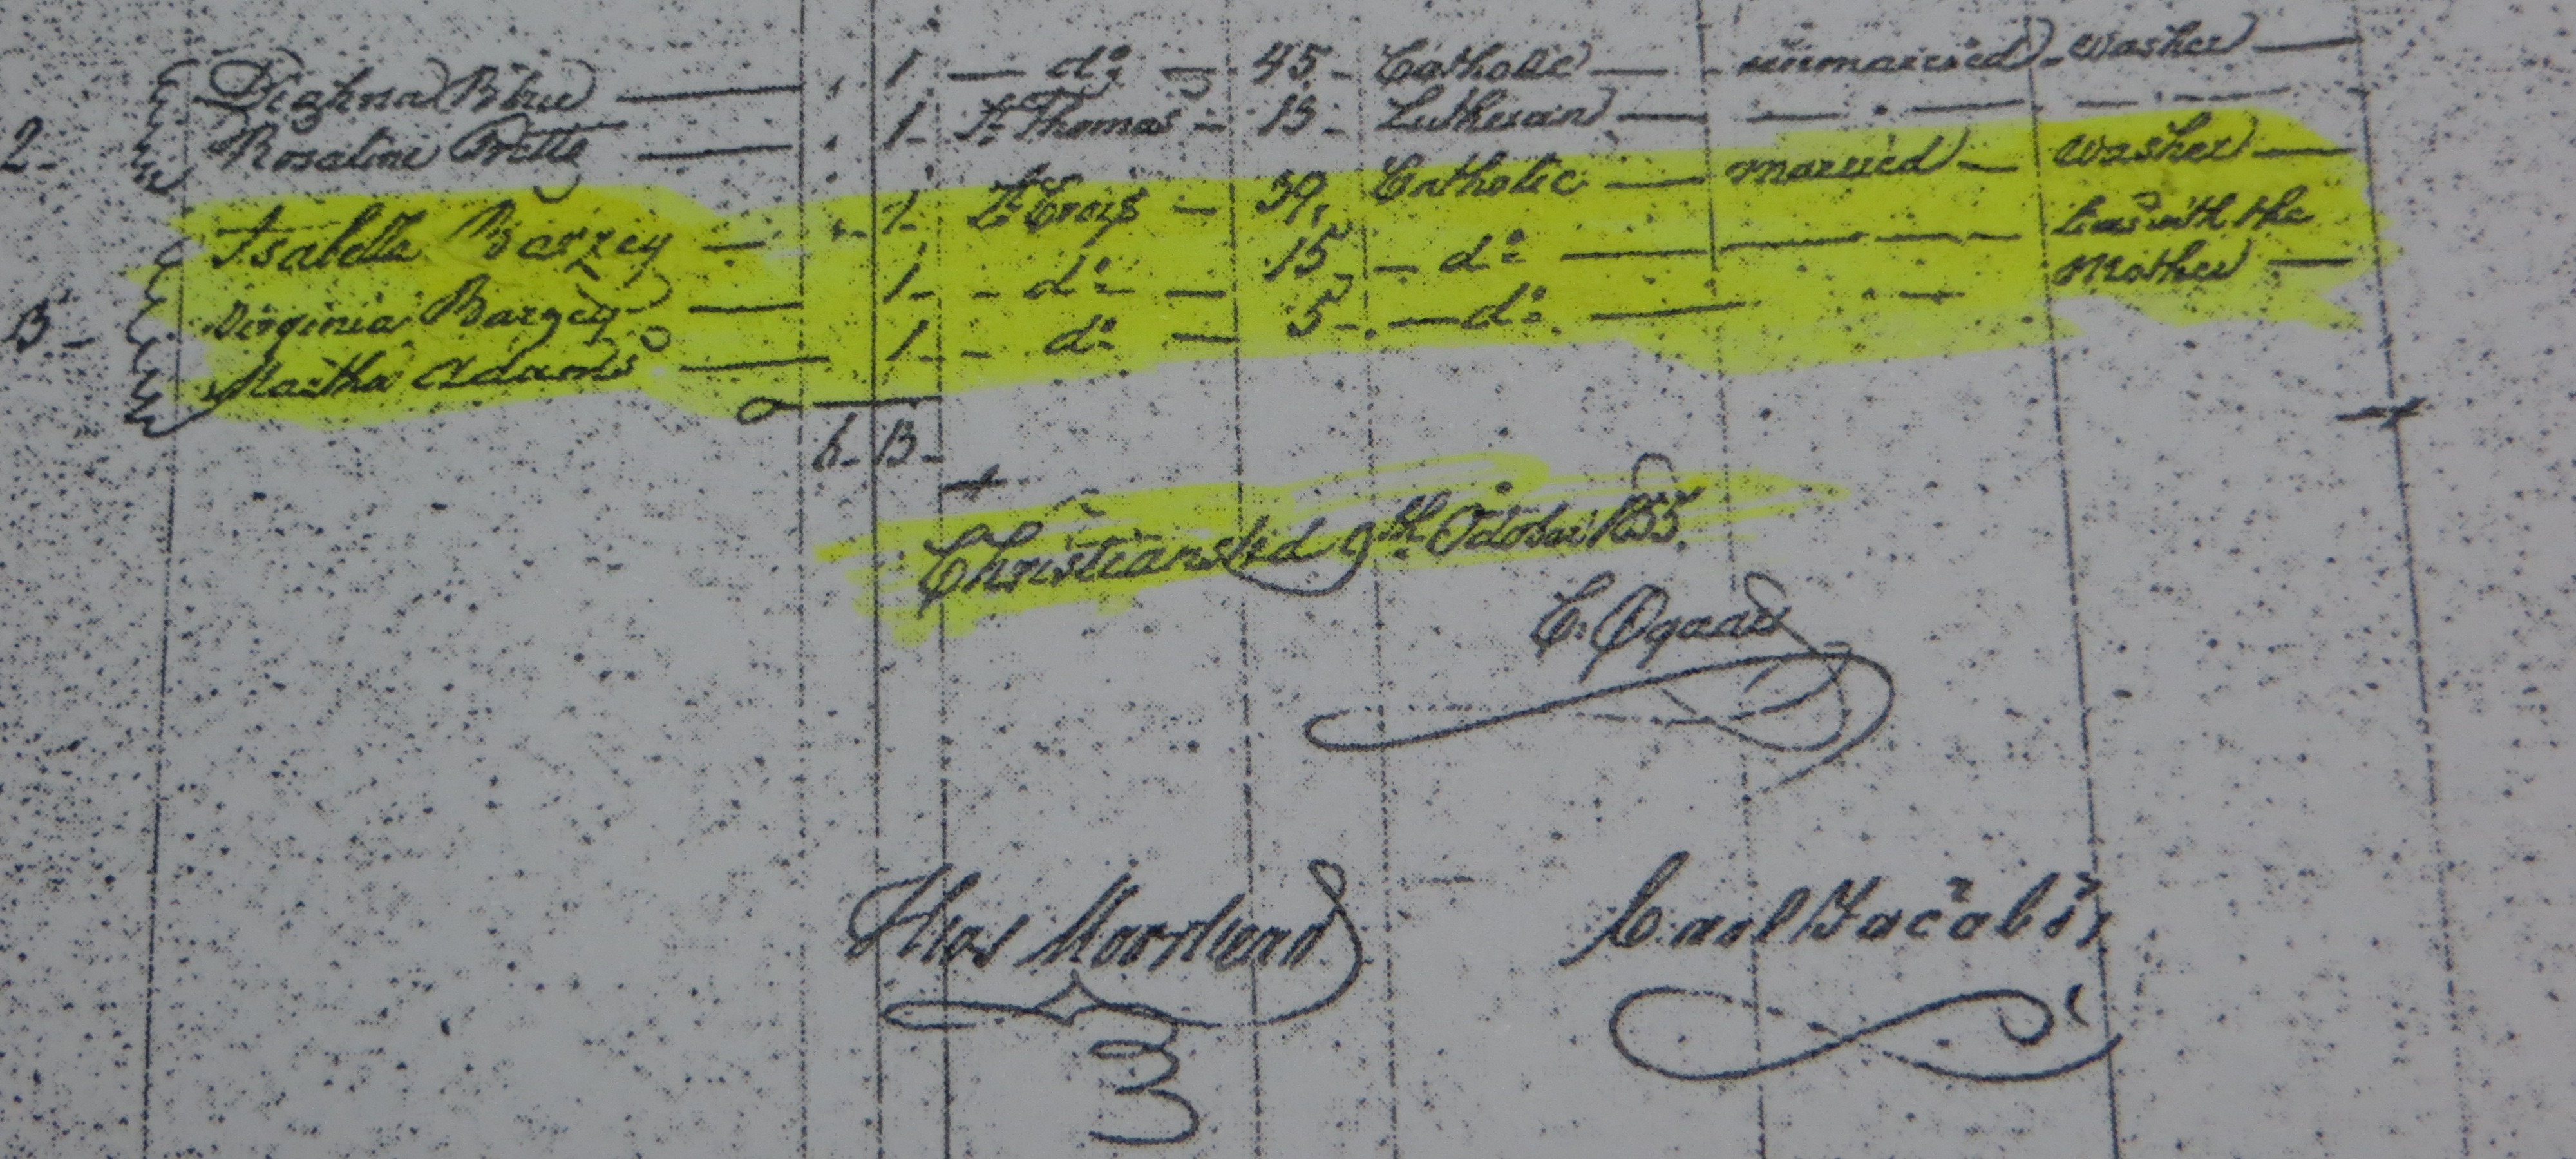 1 — do — 45 - Catholic — unmarried - Washer —
2 - Rosaline — 1 - St Thomas - 13 - Lutheran —
Isabella Barzey — 1 - St Croix — 39, Catholic — married — Washer —
Virginia Barzey — 1 - do — 15, — do — lives with the
3 - Martha Adams — 1 - do — 5 - do — Mother —
6 - 13 -
Christiansted 9th October 1855.
C. Øgaard
Thos Moorhead
Carl Jacobs
3